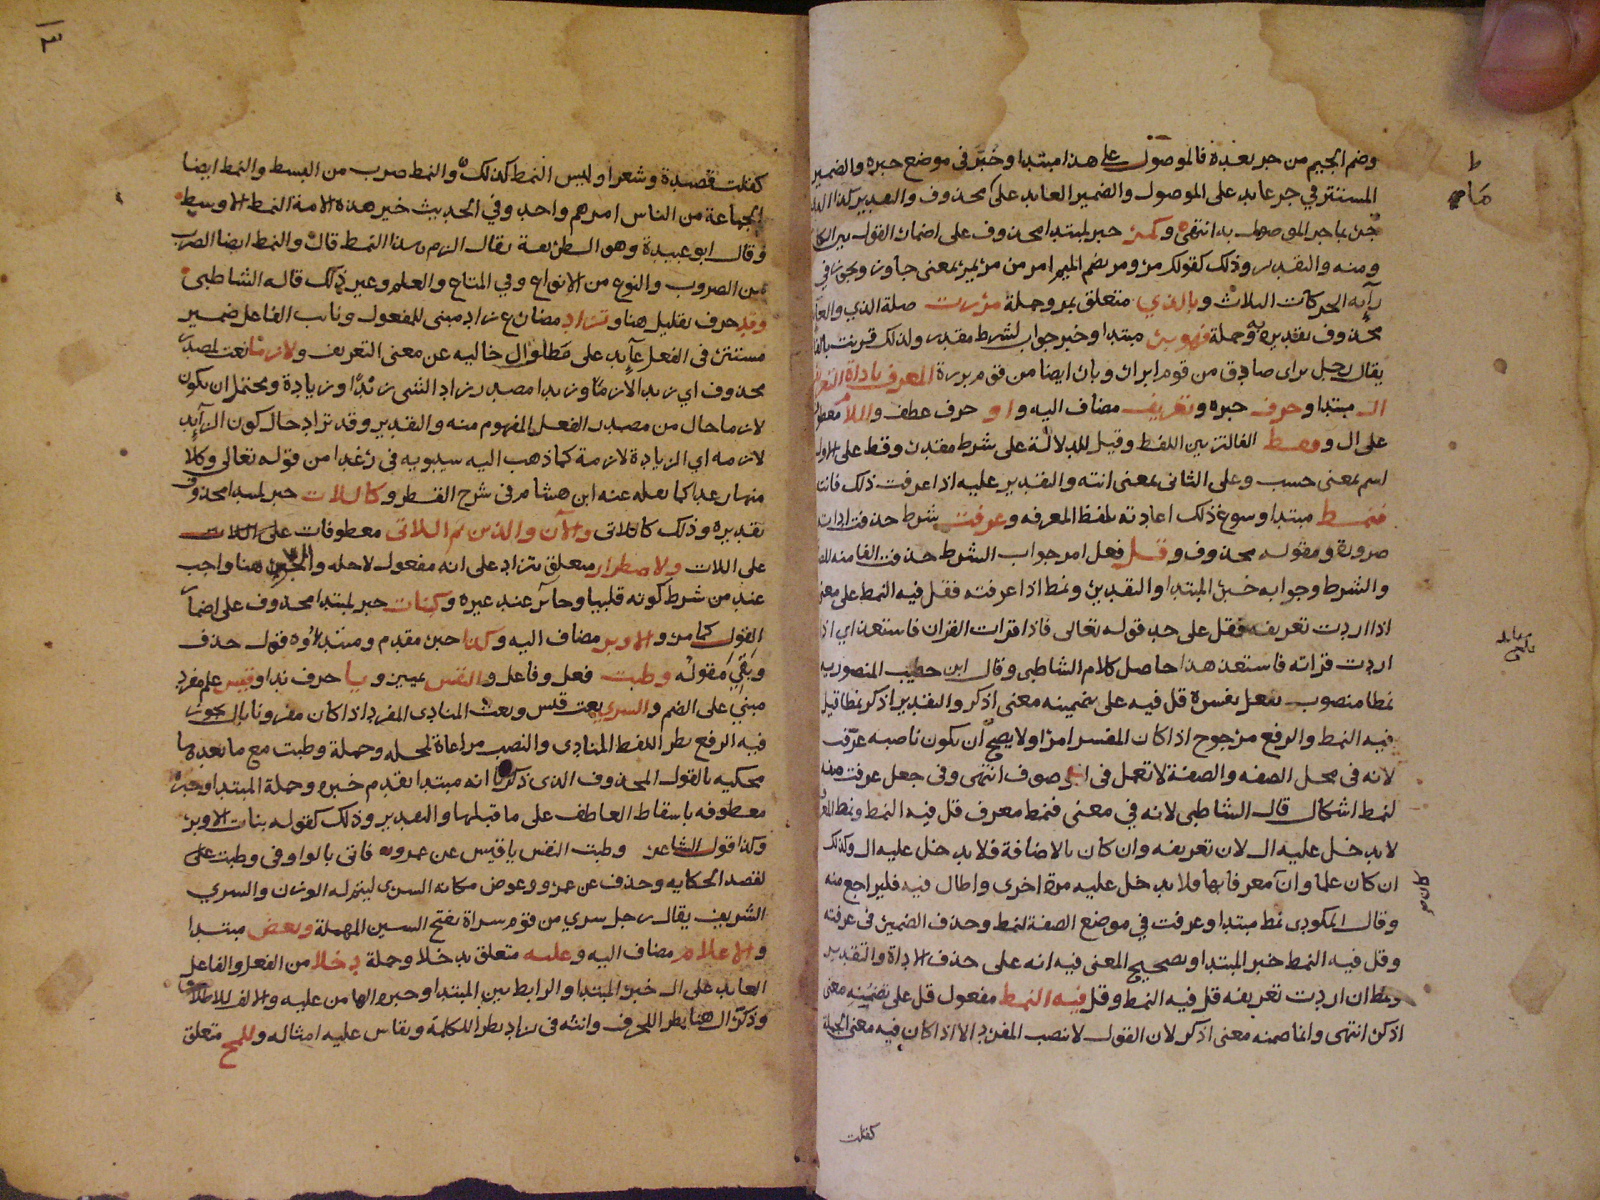 وضم الجيم من جر بعده فالموصول على هذا مبتدا وخبر في موضع خبره والضمير
المستتر في جر عايد على الموصول والضمير العايد على محذوف والتقدير كذا الذي
جر بما جر الموصول به انتهى وكمر خبر لمبتدا محذوف على اضمار القول بين الكاف
ومنه والتقدير وذلك كقولك مر ومر بضم الميم امر من مر يمر بمعنى جاوز ويجوز في
رآيه الحركات الثلاث وبالذي متعلق بمر وجملة مررت صلة الذي والعايد
محذوف تقديره به وجملة فهو بر مبتدا وخبر جواب لشرط مقدر ولذلك قرنت بالفا
يقال رجل بر اي صادق من قوم ابرار وبار ايضا من قوم بررة المعرف باداة التعريف
ال مبتدا وحرف خبره وتعريف مضاف اليه واو حرف عطف واللام معطوف
على ال وفقط الفا لتزيين اللفظ وقيل للدلالة على شرط مقدر وقط على الاول
اسم بمعنى حسب وعلى الثاني بمعنى انته والتقدير عليه اذا عرفت ذلك فانته
فنمط مبتدا وسوغ ذلك اعادته بلفظ المعرفه وعرفت شرط حذفت اداته
ضرورة ومقوله محذوف وقل فعل امر جواب الشرط حذفت الفا منه للضرورة
والشرط وجوابه خبر المبتدا والتقدير ونمط اذا عرفته فقل فيه النمط على معنى
اذا اردت تعريفه فقل على حد قوله تعالى فاذا قرات القران فاستعذ اي اذا
اردت قراته فاستعذ هذا حاصل كلام الشاطبي وقال ابن خطيب المنصوريه
نمطا منصوب بفعل يفسره قل فيه على تضمينه معنى اذكر والتقدير اذكر نمطا قيل
فيه النمط والرفع مرجوح اذا كان المفسر امرا ولا يصح ان يكون ناصبه عرفت
لانه في محل الصفه والصفة لا تعمل في الموصوف انتهى وفي جعل عرفت صفة
لنمط اشكال قال الشاطبي لانه في معنى فنمط معرف قل فيه النمط ونمط المعرف
لا يدخل عليه ال لان تعريفه وان كان بالاضافة فلا يدخل عليه ال وكذلك
ان كان علما وان معرفا بها فلا يدخل عليه مرة اخرى واطال فيه فليراجع منه
وقال المكودي نمط مبتدا وعرفت في موضع الصفة لنمط وحذف الضمير في عرفته
وقل فيه النمط خبر المبتدا وتصحيح المعنى فيه انه على حذف الاداة والتقدير
ونمط ان اردت تعريفه قل فيه النمط وقل فيه النمط مفعول قل على تضمينه معنى
اذكر انتهى وانما ضمنه معنى اذكر لان القول لا ينصب المفرد الا اذا كان فيه معنى الجملة
كقلت
كقلت قصيدة وشعرا وليس النمط كذلك والنمط ضرب من البسط والنمط ايضا
الجماعة من الناس امرهم واحد وفي الحديث خير هذه الامة النمط الاوسط
وقال ابو عبيدة وهو الطريقة يقال الزم هذا النمط قال والنمط ايضا الضرب
من الضروب والنوع من الانواع وفي المتاع والعلم وغير ذلك قاله الشاطبي
وقد حرف تقليل هنا وتزاد مضارع زاد مبني للمفعول ونايب الفاعل ضمير
مستتر في الفعل عايد على مطلق ال خاليه عن معنى التعريف ولازما نعت لمصدر
محذوف اي زيدا لازما وزيدا مصدر زاد الشي زيدا وزيادة ويحتمل ان يكون
لازما حال من مصدر الفعل المفهوم منه والتقدير وقد تزاد حال كون الزايد
لازمه اي الزيادة لازمة كما ذهب اليه سيبويه في رغدا من قوله تعالى وكلا
منها رغدا كما نقله عنه ابن هشام في شرح القطر وكاللات خبر لمبتدا محذوف
تقديره وذلك كاللاتي والآن والذين ثم اللاتي معطوفات على اللات
على اللات ولاضطرار متعلق بتزاد على انه مفعول لاجله والجر هنا واجب
عند من شرط كونه قلبيا وجايز عند غيره وكبنات خبر لمبتدا محذوف على اضمار
القول كما مر والاوبر مضاف اليه وكذا خبر مقدم ومبتداوه قول حذف
وبقي مقوله وطبت فعل وفاعل والنفس تمييز ويا حرف ندا وقيس علم مفرد
مبني على الضم والسري نعت قيس ونعت المنادى المفرد اذا كان مقرونا بال يجوز
فيه الرفع نظر اللفظ المنادى والنصب مراعاة لمحله وجملة وطبت مع ما بعدها
محكيه بالقول المحذوف الذي ذكرنا انه مبتدا تقدم خبره وجملة المبتدا وخبره
معطوفه باسقاط العاطف على ما قبلها والتقدير وذلك كقوله بنات الاوبر
وكذا قول الشاعر وطبت النفس يا قيس عن عمرو فاتى بالواو في وطبت على
لقصد الحكايه وحذف عن عمرو وعوض مكانه السري ليتم له الوزن والسري
الشريف يقال رجل سري من قوم سراة بفتح السين المهملة وبعض مبتدا
والاعلام مضاف اليه وعليه متعلق بدخلا وجملة دخلا من الفعل والفاعل
العايد على ال خبر المبتدا والرابط بين المبتدا وخبره الها من عليه والالف للاطلاق
وذكر ال هنا نظر اللحرف وانثه في تزاد نظر اللكلمة وتقاس عليه امثاله وللمح متعلق